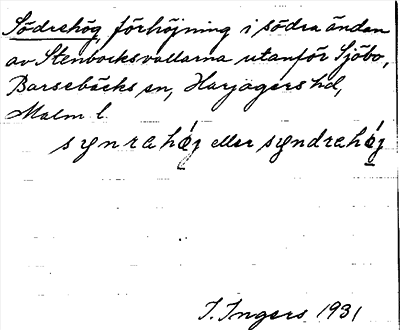 Södrehög, förhöjning i södra ändan
av Stenbocksvallarna utanför Sjöbo,
Barsebäcks sn, Harjagers hd,
Malm l.
synrahǿg eller syndrahǿg
I. Ingers 1931